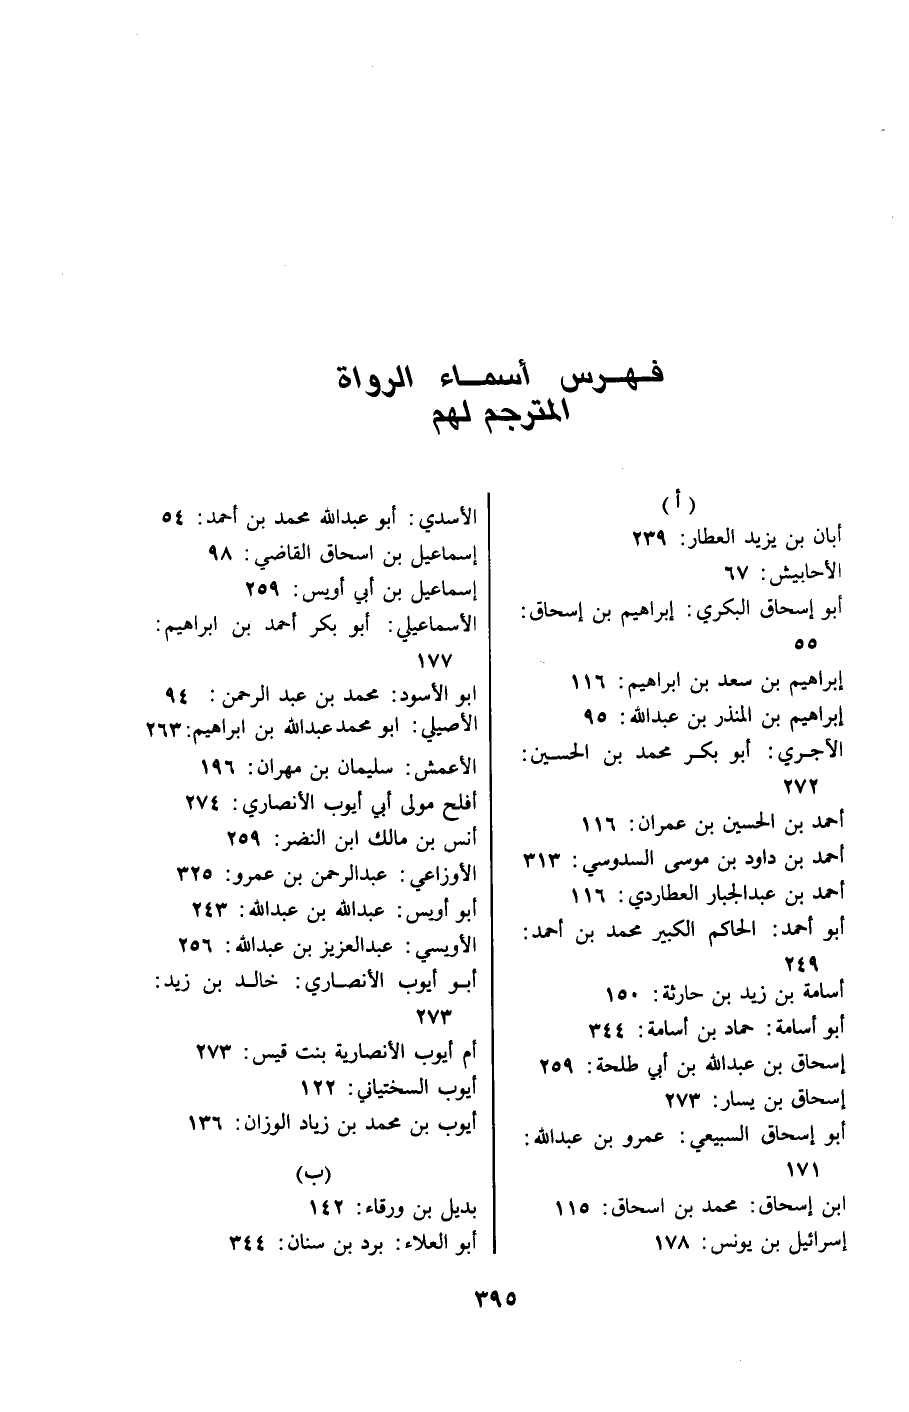 فـهـرس أسمـاء الرواة
المترجم لهم
(أ)
أبان بن يزيد العطار: ٢٣٩
الأحابيش: ٦٧
أبو إسحاق البكري: إبراهيم بن إسحاق:
٥٥
إبراهيم بن سعد بن ابراهيم: ١١٦
إبراهيم بن المنذر بن عبدالله: ٩٥
الآجـري: أبو بكـر محمد بن الحسين:
٢٧٢
أحمد بن الحسين بن عمران: ١١٦
أحمد بن داود بن موسى السدوسي: ٣١٣
أحمد بن عبدالجبار العطاردي: ١١٦
أبو أحمد: الحاكم الكبير محمد بن أحمد:
٢٤٩
أسامة بن زيد بن حارثة: ١٥٠
أبو أسامة: حماد بن أسامة: ٣٤٤
إسحاق بن عبدالله بن أبي طلحة: ٢٥٩
إسحاق بن يسار: ٢٧٣
أبو إسحاق السبيعي: عمرو بن عبدالله:
١٧١
ابن إسحاق: محمد بن اسحاق: ١١٥
إسرائيل بن يونس: ١٧٨
الأسدي: أبو عبدالله محمد بن أحمد: ٥٤
إسماعيل بن اسحاق القاضي: ٩٨
إسماعيل بن أبي أويس: ٢٥٩
الأسماعيلي: أبو بكر أحمد بن ابراهيم:
١٧٧
ابو الأسود: محمد بن عبد الرحمن: ٩٤
الأصيلي: ابو محمد عبدالله بن ابراهيم: ٢٦٣
الأعمش: سليمان بن مهران: ١٩٦
أفلح مولى أبي أيوب الأنصاري: ٢٧٤
أنس بن مالك ابن النضر: ٢٥٩
الأوزاعي: عبدالرحمن بن عمرو: ٣٢٥
أبو أويس: عبدالله بن عبدالله: ٢٤٣
الأويسي: عبدالعزيز بن عبدالله: ٢٥٦
أبـو أيوب الأنصـاري: خالـد بن زيد:
٢٧٣
أم أيوب الأنصارية بنت قيس: ٢٧٣
أيوب السختياني: ١٢٢
أيوب بن محمد بن زياد الوزان: ١٣٦
(ب)
بديل بن ورقاء: ١٤٢
أبو العلاء: برد بن سنان: ٣٤٤
٣٩٥